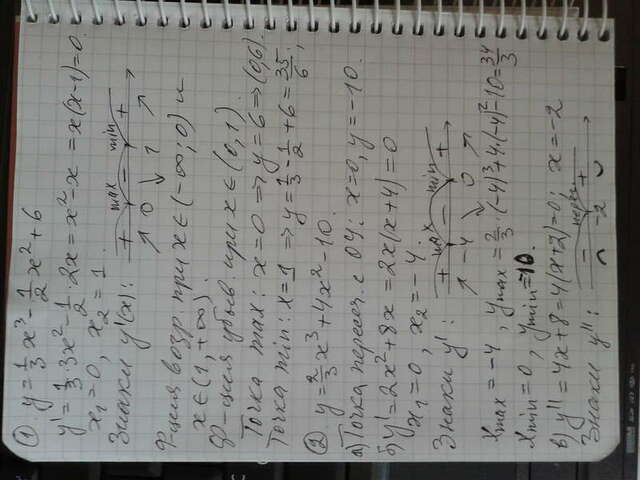 ① y = 1/3 x³ - 1/2 x² + 6
y' = 1/3 · 3x² - 1/2 · 2x = x² - x = x(x-1) = 0.
x₁ = 0, x₂ = 1.
Знаки y'(x): + max - min +
↗ 0 ↘ 1 ↗
Ф-ция возр. при x ∈ (-∞; 0) и
x ∈ (1, +∞).
Ф-ция убыв. при x ∈ (0, 1).
Точка max: x = 0 ⇒ y = 6 ⇒ (0,6).
Точка min: x = 1 ⇒ y = 1/3 - 1/2 + 6 = 35/6;
② y = 2/3 x³ + 4x² - 10.
а) Точка пересеч. с OY: x = 0, y = -10.
б) y' = 2x² + 8x = 2x(x+4) = 0
x₁ = 0, x₂ = -4.
Знаки y': + max - min +
↗ -4 ↘ 0 ↗
xmax = -4, ymax = 2/3 · (-4)³ + 4·(-4)² - 10 = 34/3
xmin = 0, ymin = -10.
в) y'' = 4x + 8 = 4(x+2) = 0; x = -2
Знаки y'': - +
-2